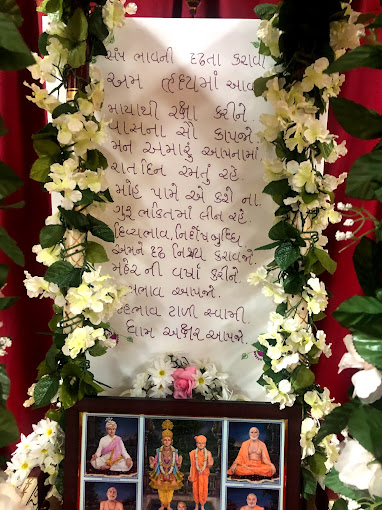 સંપ ભાવની દૃઢતા કરાવી
અમ હૃદયમાં આવ
માયાથી રક્ષા કરીને
વાસના સૌ કાપજો.
મન અમારું આપનામાં
રાત દિન રમતું રહે.
મોહ પામે એ કશે ના
ગુરુ ભક્તિમાં લીન રહે.
દિવ્યભાવ, નિર્દોષબુદ્ધિ
અમને દૃઢ નિશ્ચય કરાવજો.
મહેર ની વર્ષા કરીને
ભાવ આપજો.
દેહભાવ ટાળી સ્વામી
ધામ અક્ષર આપજો.